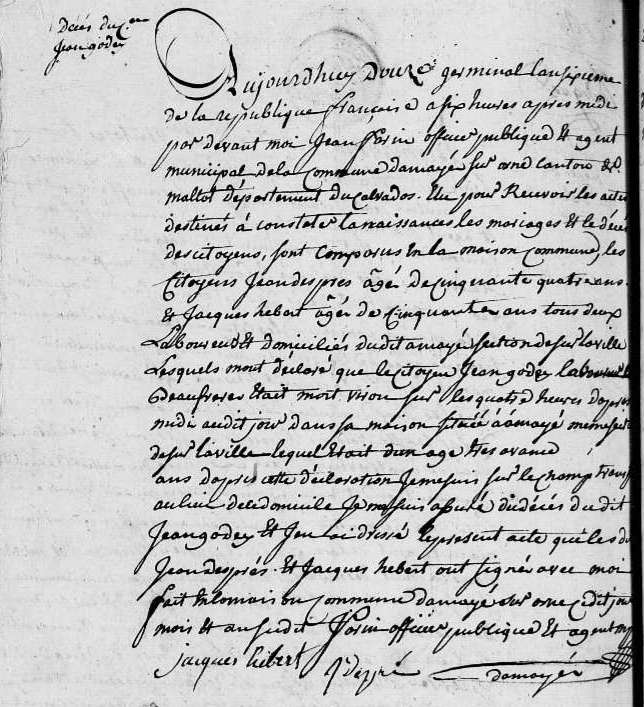 Décès du Cen
Jean godey
Aujourdhuy Douze germinal Lan sixieme
de la republique française a six heures apres midi
par devant moi Jean Forin officier publique et agent
municipal de la Commune damayé sur orne canton de
maltot département du Calvados. Elu pour Recevoir les actes
destinés à constater la naissances les mariages et le décé
des citoyens, sont Comparus en la maison commune, les
Citoyens Jean despres âgér de cinquante quatre ans.
et Jacques hebert âgér de Cinquante ans tous deux
Laboureurs et domiciliés dudit amayé section de sur la ville
Lesquels mont déclaré que le citoyen Jean godey laboureur
était mort viron sur les quatre heures dapres
midi audit jour dans sa maison située à amayé meme section
de sur la ville lequel était dun age tres avancé
ans dapres cette déclaration Je me suis sur le champ transp
au lieu de le domicile Je me suis assuré du décés du dit
Jean godey et Jen ai dressé le present acte que les d
Jean després. et Jacques hebert ont signé avec moi
fait en la maison commune damayé sur orne cedit jour
mois et an susdit Forin officier publique et agent
jacques hébert
J despré
damayé